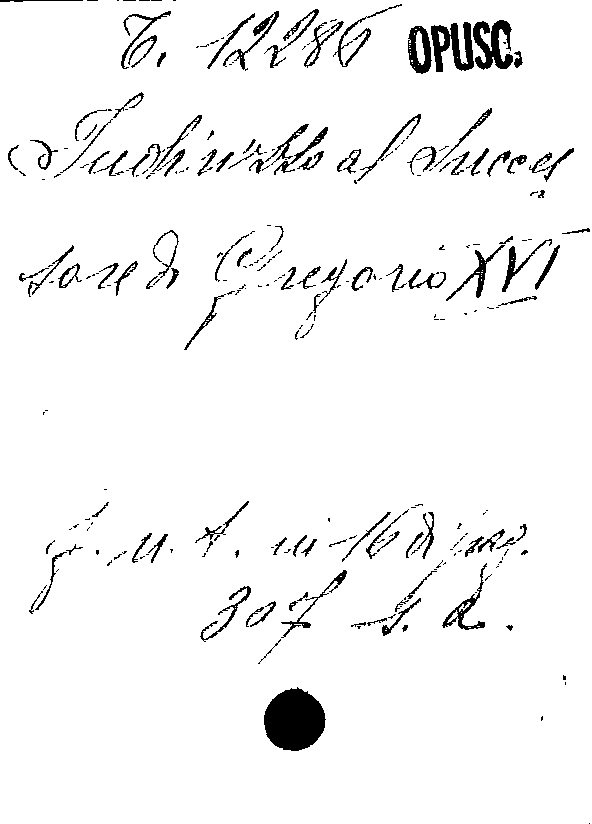 T. 12286 OPUSC.
Indirizzo al Succes
sore di Gregorio XVI
f. n. t. in-16 di pag.
307 s. d.